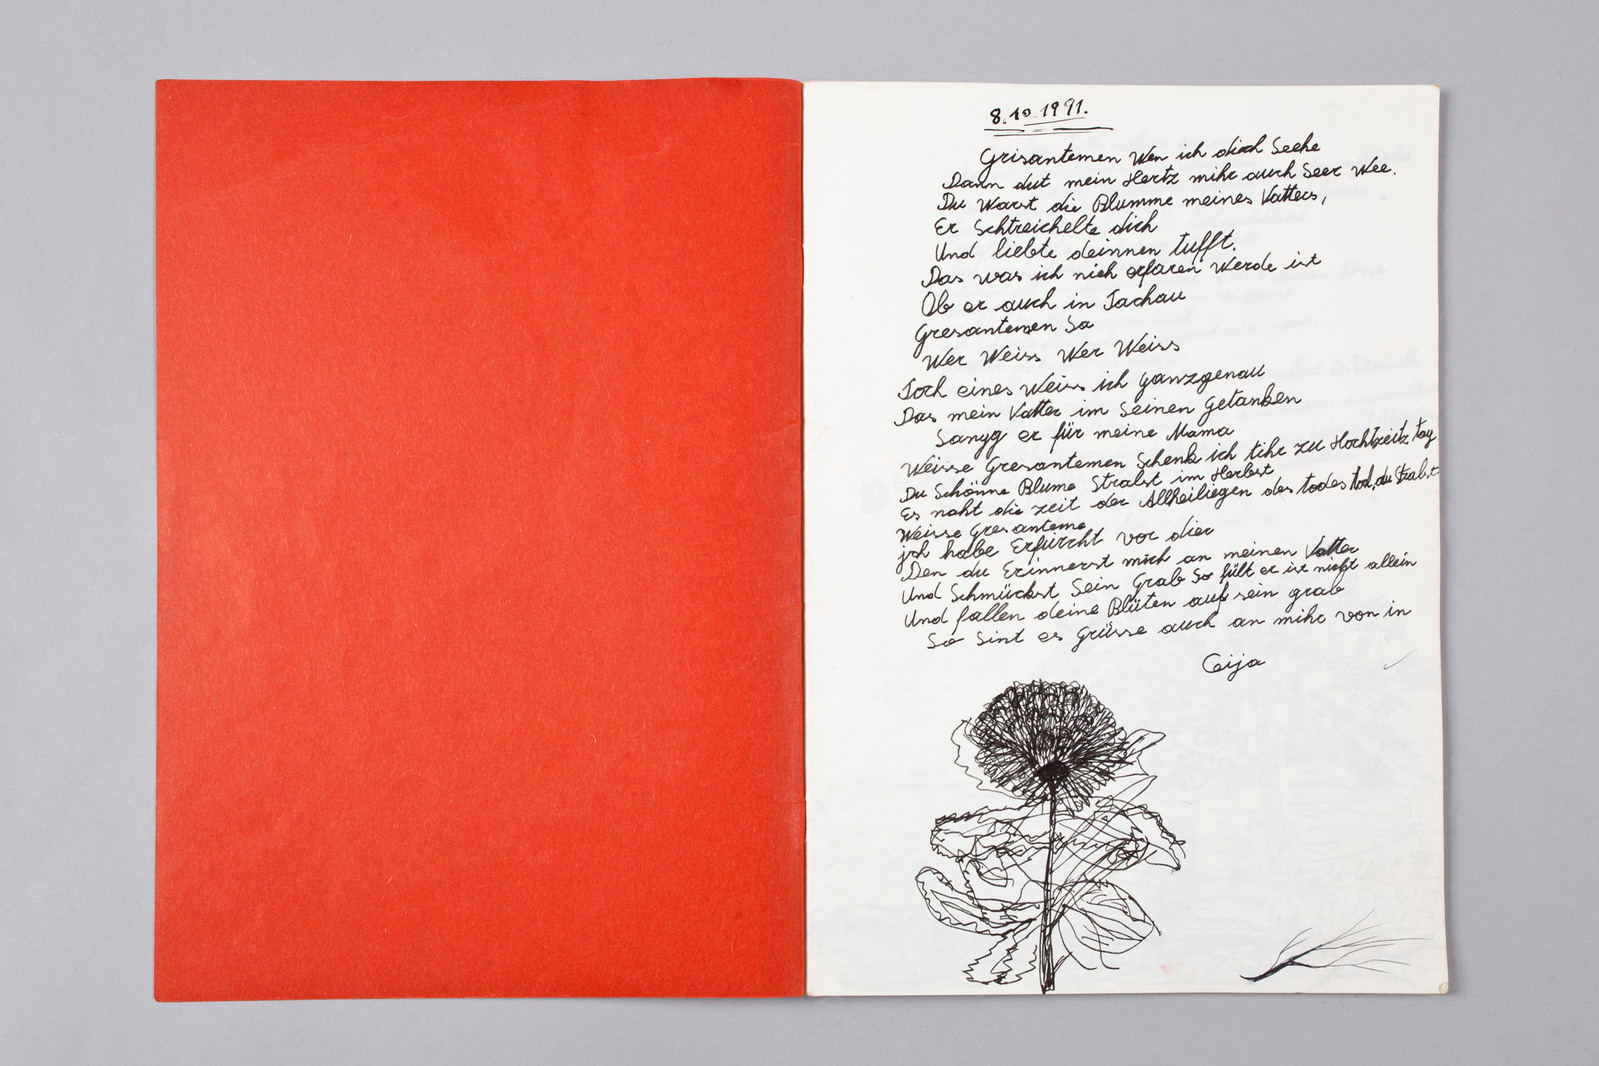 8.10.1991.
Grisantemen Wen ich dich Seehe
Dann dut mein Hertz mihr auch Seer Wee.
Du Warst die Blumme meines Vatters,
Er Schtreichelte dich
Und liebte deinnen tufft.
Das was ich nich erfaren Werde ist
Ob er auch in Tachau
Gresantemen Sa
Wer Weiss Wer Weiss
Toch eines Weiss ich ganzgenau
Das mein Vatter im Seinen Getanken
Sanyg er für meine Mama
Weisse Gresantemen Schenk ich tihr zu Hochtzeitz tag
Du Schönne Blume Stralst im Herbst
Es naht die zeit der Allheiliegen des todes tod, du Stralst
Weisse Gresanteme
jch habe Erfürcht vor dier
Den du Erinnerst mich an meinen Vatter
Und Schmückst Sein Grab So fült er ist nicht allein
Und fallen deine Blüten auf sein grab
So Sint es Grüsse auch an mihr von in
Ceija